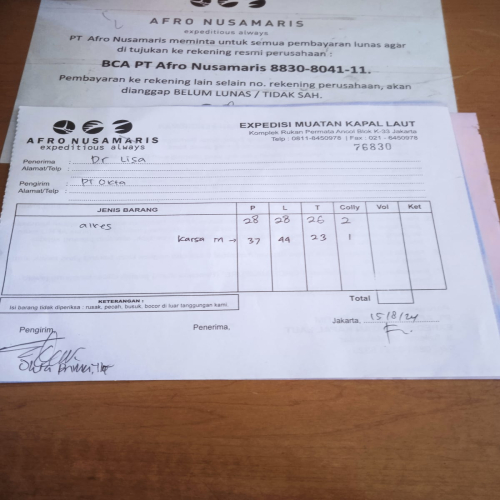 AFRO NUSAMARIS
expeditious always
PT Afro Nusamaris meminta untuk semua pembayaran lunas agar
di tujukan ke rekening resmi perusahaan :
BCA PT Afro Nusamaris 8830-8041-11.
Pembayaran ke rekening lain selain no. rekening perusahaan, akan
dianggap BELUM LUNAS / TIDAK SAH.
AFRO NUSAMARIS
expeditious always
EXPEDISI MUATAN KAPAL LAUT
Komplek Rukan Permata Ancol Blok K-33 Jakarta
Telp : 0811-8450978 | Fax : 021 - 6450978
76830
Penerima : Dr Lisa
Alamat/Telp
Pengirim : PT Okta
Alamat/Telp
JENIS BARANG P L T Colly Vol Ket
aires 28 28 26 2
Karsa m → 37 44 23 1
Total
KETERANGAN :
Isi barang tidak diperiksa : rusak, pecah, busuk, bocor di luar tanggungan kami.
Pengirim, Penerima, Jakarta, 15/8/24